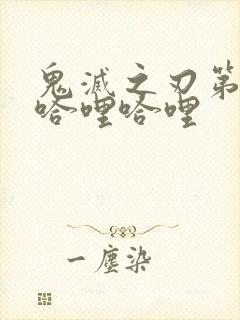 鬼滅之刃第
哈哩哈哩
一塵染